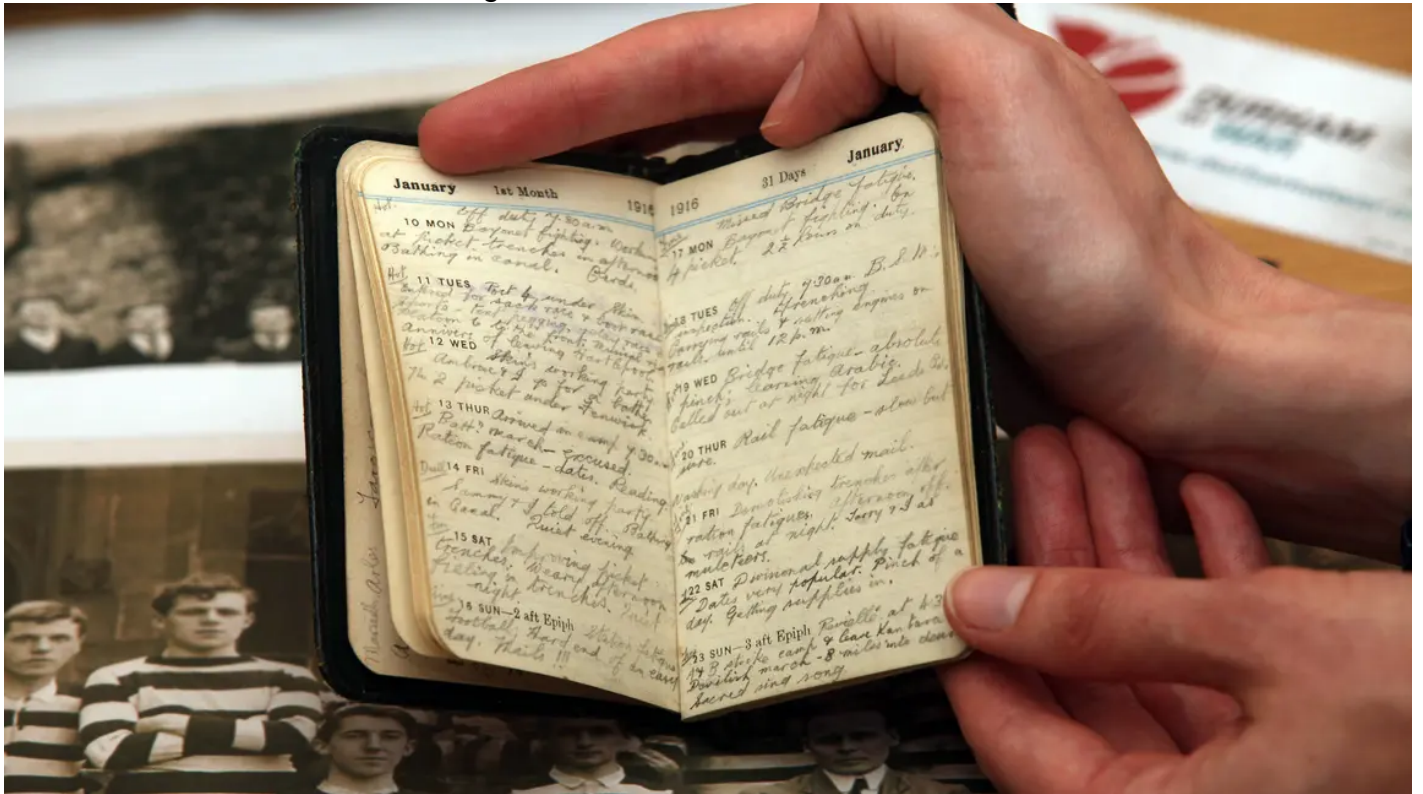 January 1st Month 1916
Hot. Off duty 7.30 am
10 MON Bayonet fighting. Work
at picket trenches in afternoon
Bathing in canal. Cards.
Hot 11 TUES under Skin
Entered for sack race & boat race
sports - tent pegging, relay race
to the front.
Annivers of leaving Hartlepool
Hot 12 WED Skin's working party
Ambrose & I go for a bath
No 2 picket under Fenwick
Hot 13 THUR Arrived in camp 7.30 am
Batt: march - excused.
Ration fatigue - dates. Reading
Dull 14 FRI Skin's working party.
Sammy & I told off. Bathing
in Canal. Quiet evening
15 SAT Improving picket
trenches. Weary afternoon
feeling in trenches. Quiet
night
SUN—2 aft Epiph Station fatigue
Football. Hard end of an easy
day. Mails !!!
1916 31 Days January
Missed Bridge fatigue.
17 MON Bayonet fighting. On
picket. 2½ hours on duty.
18 TUES Off duty 7.30am B.S.M's
inspection. Trenching
Carrying rails & sitting engines on
rails until 12 p.m.
19 WED Bridge fatigue - absolute
pinch; learning Arabic.
Called out at night for Leeds Bd.
20 THUR Rail fatigue - slow but
sure.
Washing day. Unexpected mail.
21 FRI Demolishing trenches after
ration fatigues. Afternoon off.
rails at night. & I as
muleteers.
22 SAT Divisional supply fatigue
Dates very popular. Pinch of a
day. Getting supplies in.
23 SUN—3 aft Epiph Reveille at 4.3
14 B strike camp & leave Kantara
Devilish march - 8 miles into desert
Sacred sing song
DURHAM
at WAR